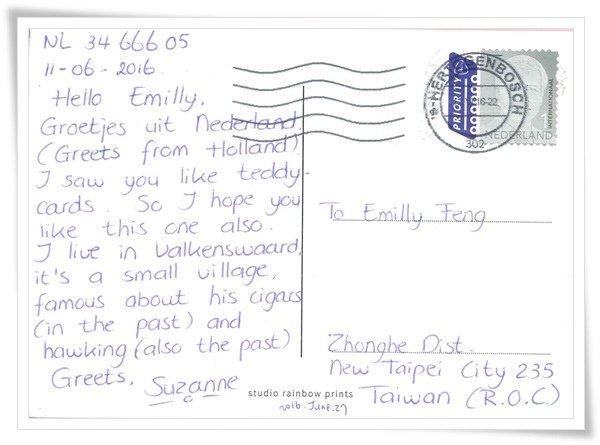 NL 34 666 05
11-06-2016
Hello Emilly,
Groetjes uit Nederland
(Greets from Holland)
I saw you like teddy-
cards. So I hope you
like this one also.
I live in Valkenswaard,
it's a small village,
famous about his cigars
(in the past) and
hawking (also the past)
Greets, Suzanne
'S-HERTOGENBOSCH
16-22
302
PRIORITY
1
INTERNATIONAAL
NEDERLAND
To Emilly Feng
Zhonghe Dist.
New Taipei City 235
Taiwan (R.O.C)
studio rainbow prints
2016. June.27